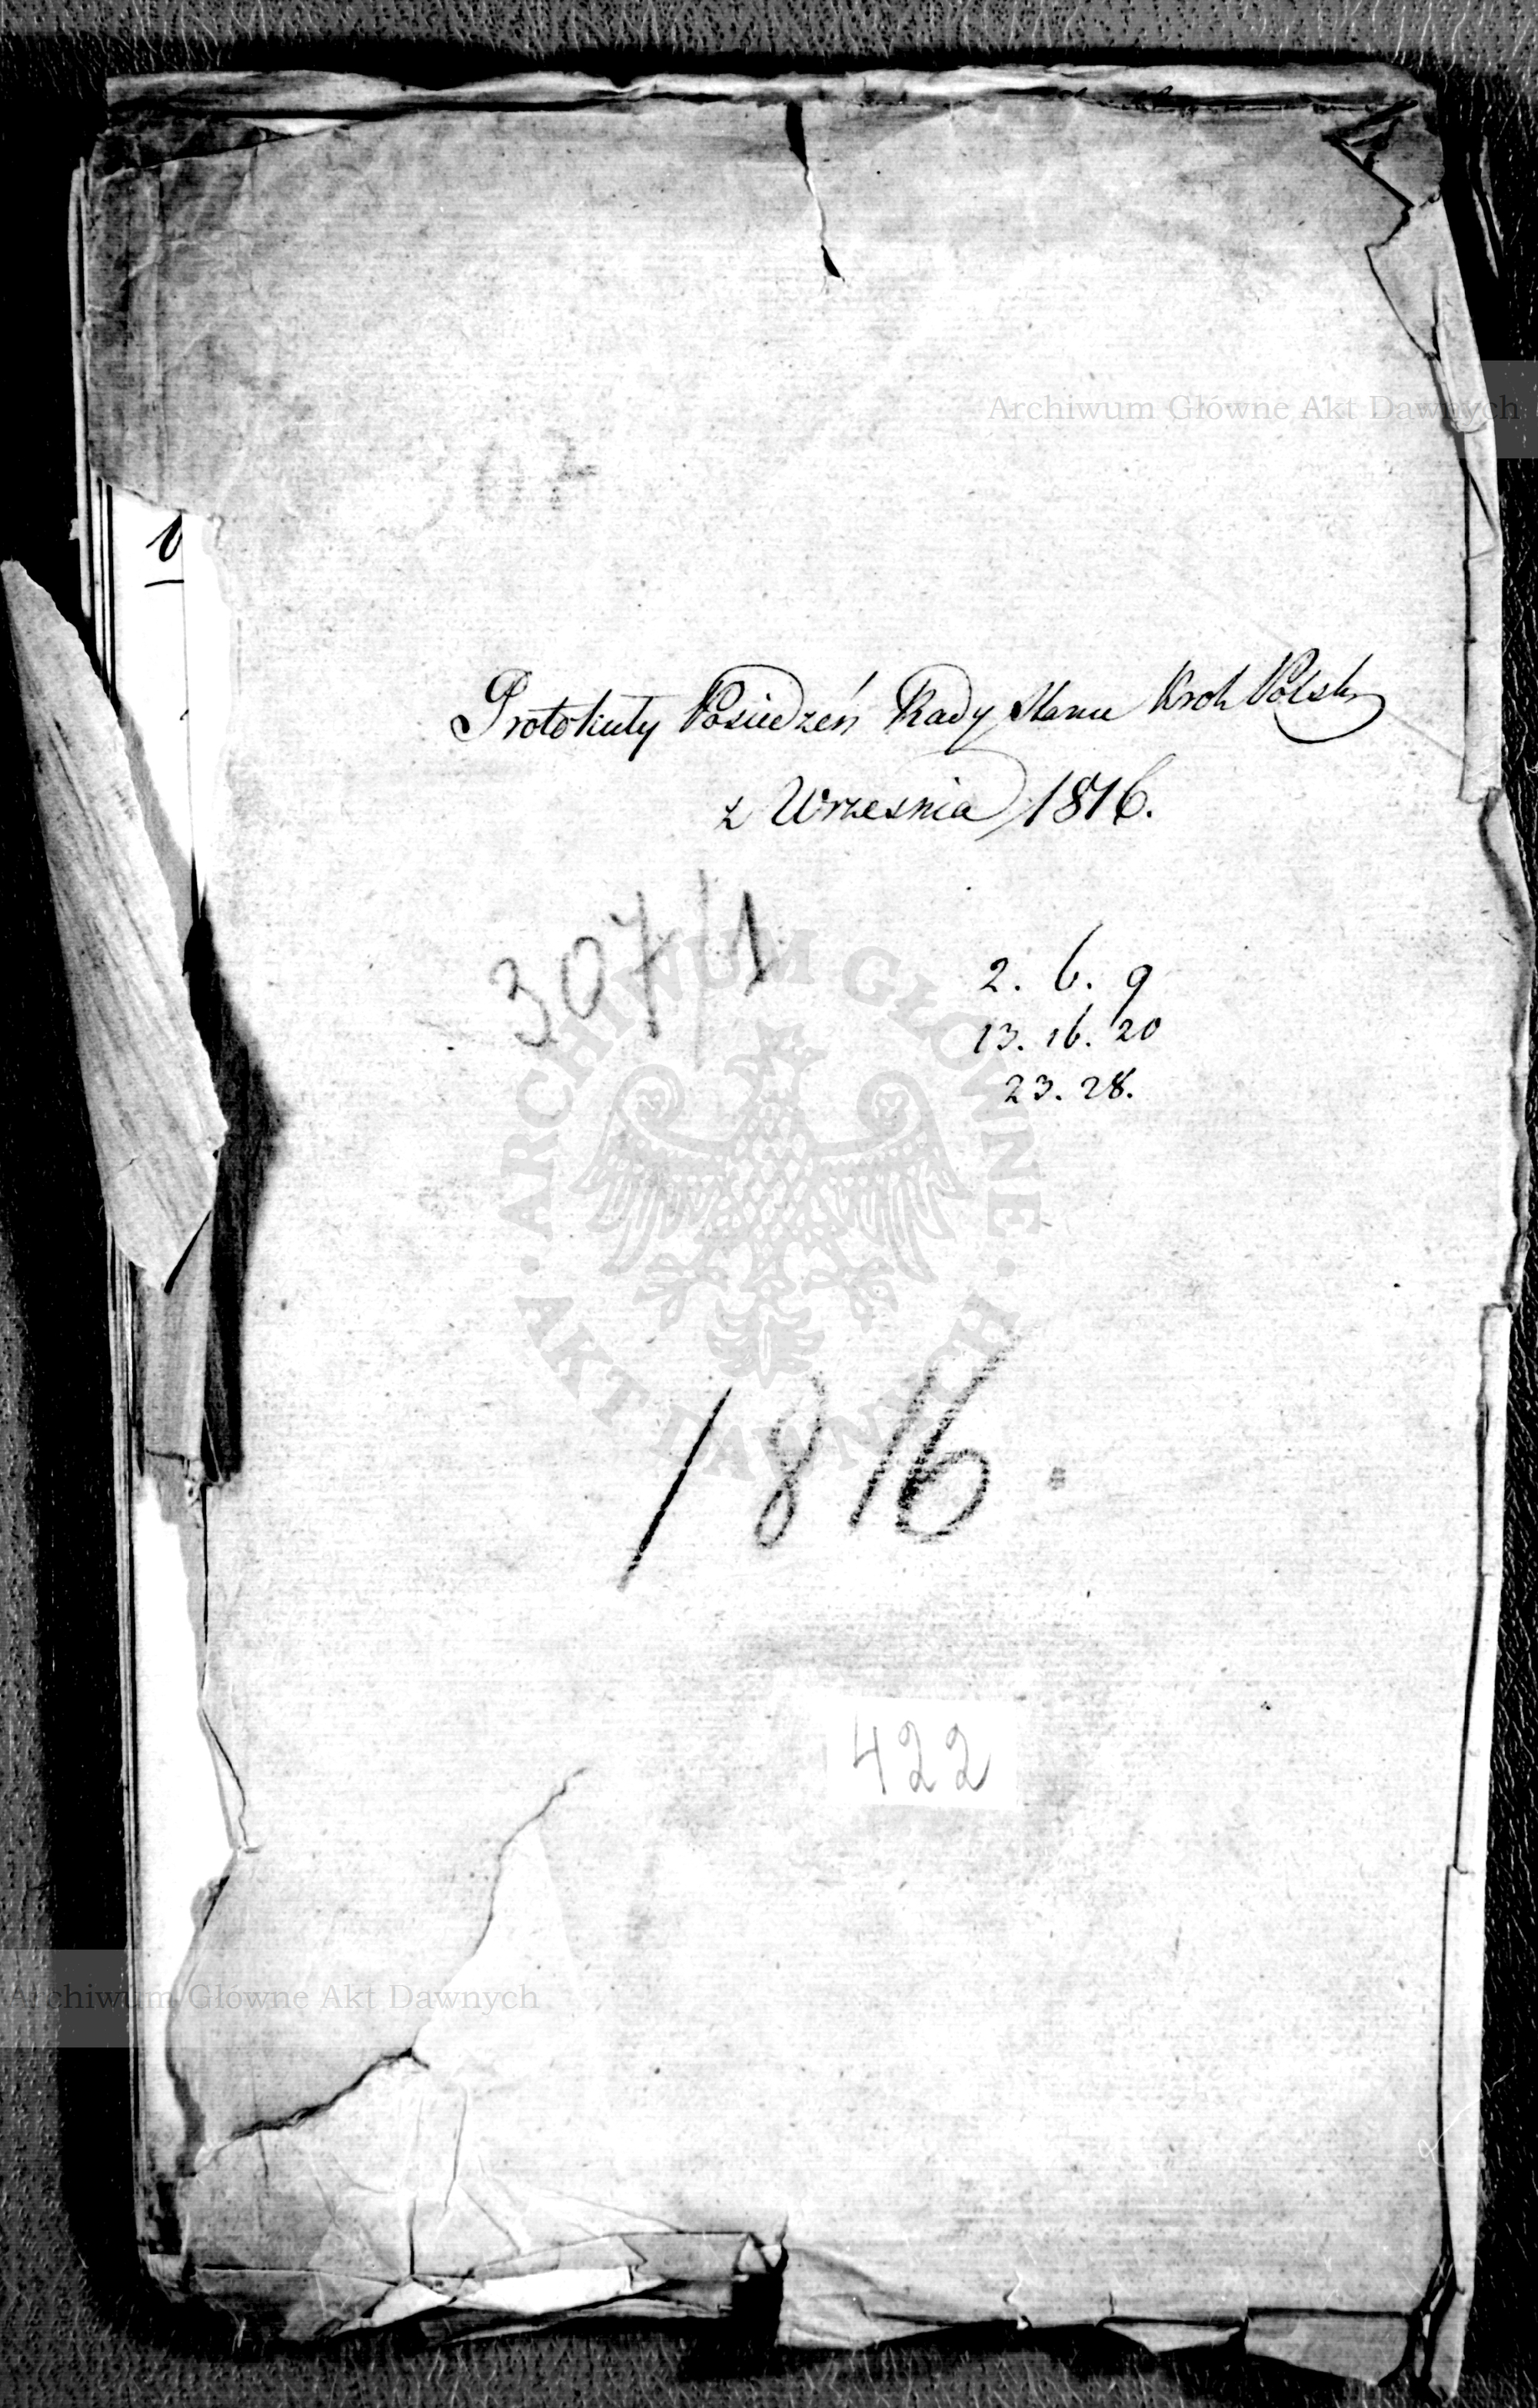 Archiwum Główne Akt Dawnych
307
Protokuły Posiedzeń Rady Stanu Krol. Polsk.
z Wrzesnia 1816.
307/1
2. 6. 9
13. 16. 20
23. 28.
ARCHIWUM GŁÓWNE
AKT DAWNYCH
1816.
422
Archiwum Główne Akt Dawnych